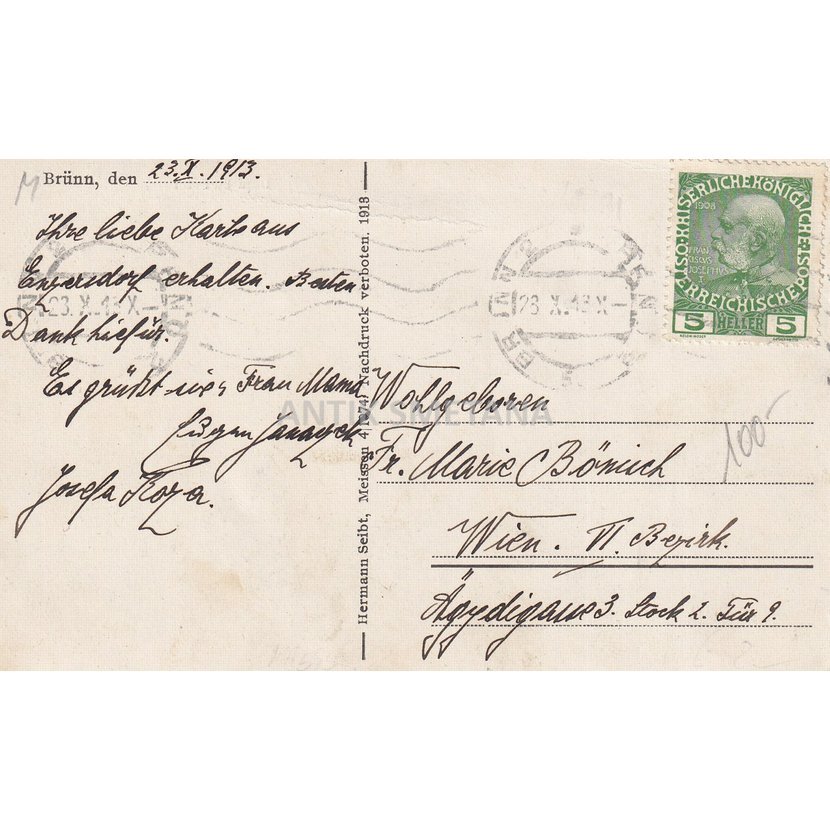 Brünn, den 23.X.1913.
Ihre liebe Karte aus
Enzersdorf erhalten. Besten
Dank hiefür.
Es grüßt sie, Frau Mama
Eugen
Josefa Koza.
Hermann Seibt, Meissen 4 Nachdruck verboten. 1913
BRÜNN 2
23.X.13.X
BRÜNN 2
23.X.13.X
K.K. ÖSTERREICHISCHE POST
1908
FRANCISCUS JOSEPHUS
5 HELLER 5
Wohlgeboren
Fr. Marie Bönisch
Wien. VI. Bezirk.
Ägydigasse 3. Stock 2. Tür 9.
100-
ANTIK SMETANA